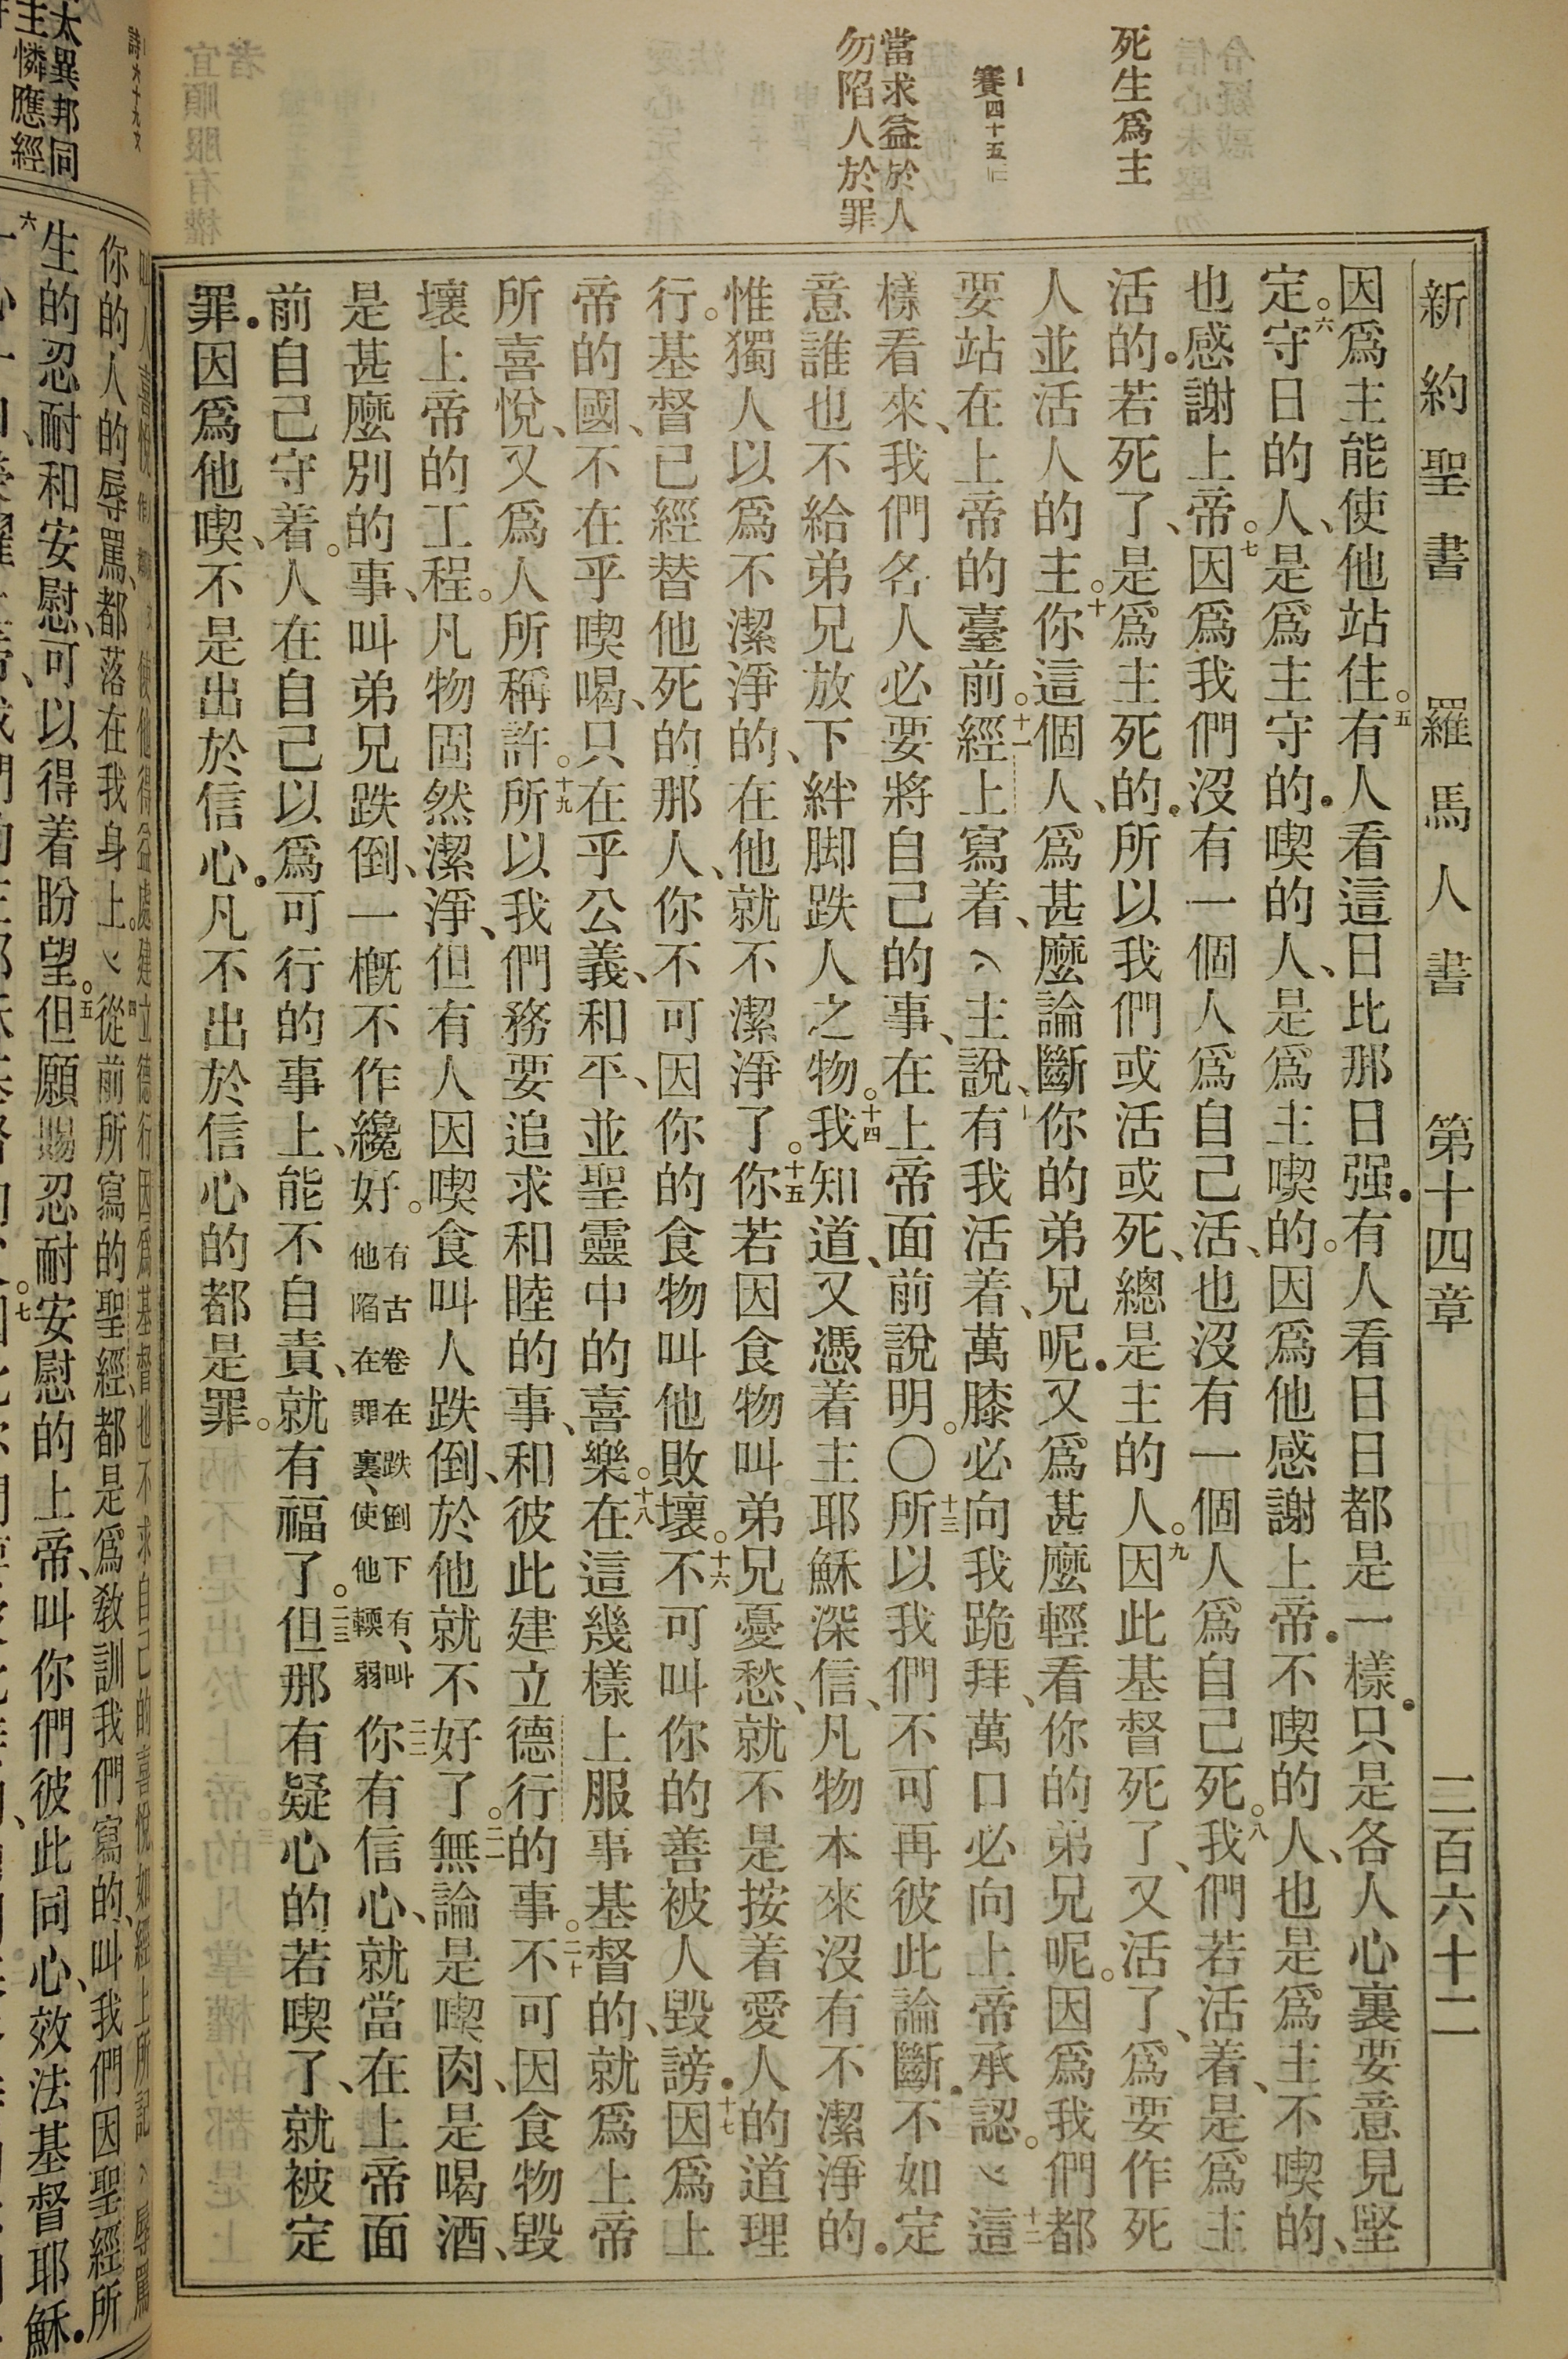 死生爲主
賽四十五
當求益於人
勿陷人於罪
新約聖書 羅馬人書 第十四章 二百六十二
因爲主能使他站住。五有人看這日比那日强.有人看日日都是一樣.只是各人心裏要意見堅
定。六守日的人、是爲主守的.喫的人、是爲主喫的。因爲他感謝上帝.不喫的人、也是爲主不喫的、
也感謝上帝。七因爲我們沒有一個人爲自己活、也沒有一個人爲自己死。八我們若活着、是爲主
活的.若死了、是爲主死的.所以我們或活或死、總是主的人。九因此基督死了、又活了、爲要作死
人並活人的主。十你這個人、爲甚麼論斷你的弟兄呢.又爲甚麼輕看你的弟兄呢。因爲我們都
要站在上帝的臺前。十一經上寫着、主說、有我活着、萬膝必向我跪拜、萬口必向上帝承認。十二這
樣看來、我們各人必要將自己的事、在上帝面前說明。〇十三所以我們不可再彼此論斷.不如定
意誰也不給弟兄放下絆脚跌人之物。十四我知道、又憑着主耶穌深信、凡物本來沒有不潔淨的.
惟獨人以爲不潔淨的、在他就不潔淨了。十五你若因食物叫弟兄憂愁、就不是按着愛人的道理
行。基督已經替他死的那人、你不可因你的食物叫他敗壞。十六不可叫你的善被人毀謗.十七因爲上
帝的國、不在乎喫喝、只在乎公義、和平、並聖靈中的喜樂。十八在這幾樣上服事基督的、就爲上帝
所喜悅、又爲人所稱許。十九所以我們務要追求和睦的事、和彼此建立德行的事。二十不可因食物毀
壞上帝的工程。凡物固然潔淨、但有人因喫食叫人跌倒、於他就不好了。二一無論是喫肉、是喝酒、
是甚麼別的事、叫弟兄跌倒、一概不作纔好。有古卷在跌倒下有、叫他陷在罪裏、使他輭弱二二你有信心、就當在上帝面
前自己守着。人在自己以爲可行的事上、能不自責、就有福了。二三但那有疑心的若喫了、就被定
罪.因爲他喫、不是出於信心.凡不出於信心的都是罪。
詩六十九
太異邦同
主憐應經
你的人的辱罵、都落在我身上。四從前所寫的聖經、都是爲教訓我們寫的、叫我們因聖經所
生的忍耐和安慰、可以得着盼望。五但願賜忍耐安慰的上帝、叫你們彼此同心、效法基督耶穌.